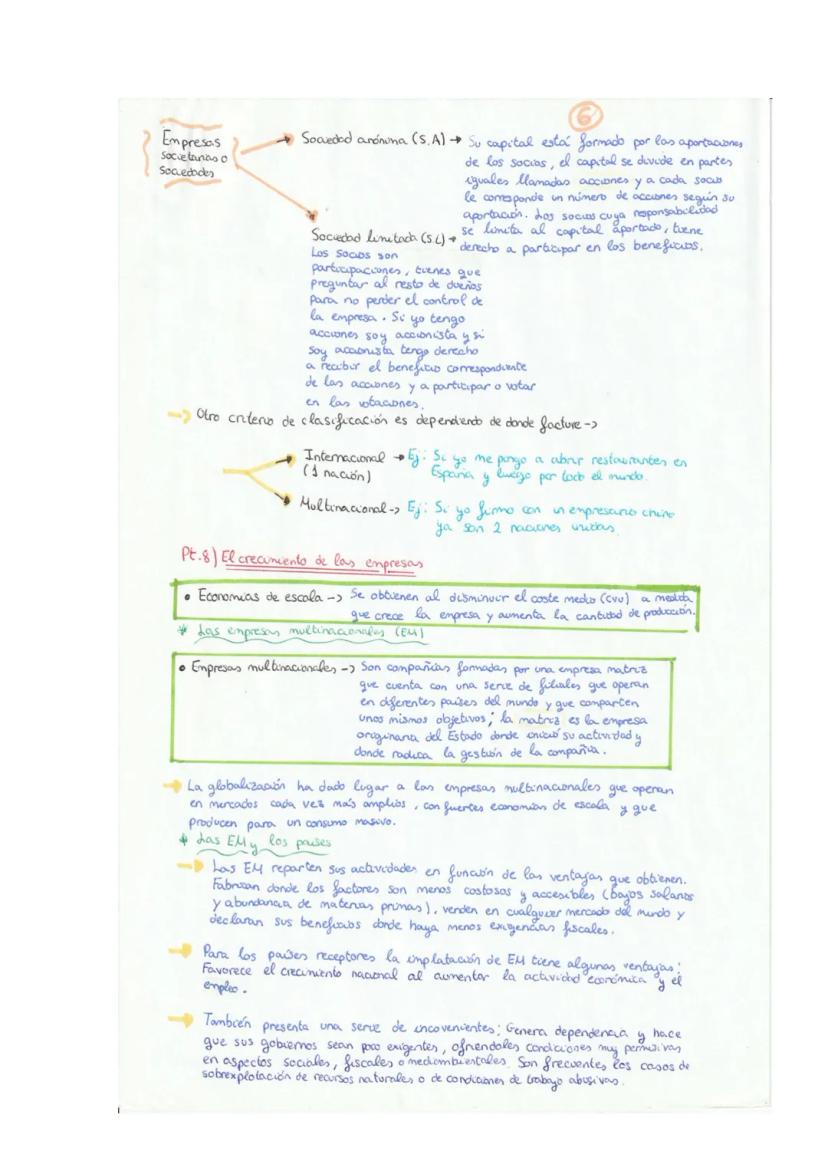 6
Empresas
societarias o
Sociedades
Sociedad anónima (S.A) → Su capital está formado por las aportaciones
de los socios, el capital se divide en partes
iguales llamadas acciones y a cada socio
le corresponde un número de acciones según su
aportación. Los socios cuya responsabilidad
se limita al capital aportado, tiene
derecho a participar en los beneficios.
Sociedad limitada (S.L) →
Los socios son
participaciones, tienes que
preguntar al resto de dueños
para no perder el control de
la empresa. Si yo tengo
acciones soy accionista y si
soy accionista tengo derecho
a recibir el beneficio correspondiente
de las acciones y a participar o votar
en las votaciones.
→ Otro criterio de clasificación es dependiendo de donde facture ->
Internacional → Ej: Si yo me pongo a abrir restaurantes en
(1 nación) España y luego por todo el mundo.
Multinacional -> Ej: Si yo firmo con un empresario chino
ya son 2 naciones unidas.
Pt.8) El crecimiento de las empresas
• Economías de escala -> Se obtienen al disminuir el coste medio (CVU) a medida
que crece la empresa y aumenta la cantidad de producción.
* Las empresas multinacionales (EM)
• Empresas multinacionales -> Son compañías formadas por una empresa matriz
que cuenta con una serie de filiales que operan
en diferentes países del mundo y que comparten
unos mismos objetivos; la matriz es la empresa
originaria del Estado donde inició su actividad y
donde radica la gestión de la compañía.
→ La globalización ha dado lugar a las empresas multinacionales que operan
en mercados cada vez más amplios, con fuertes economías de escala y que
producen para un consumo masivo.
* Las EM y los países
→ Las EM reparten sus actividades en función de las ventajas que obtienen.
Fabrican donde los factores son menos costosos y accesibles (bajos salarios
y abundancia de materias primas), venden en cualquier mercado del mundo y
declaran sus beneficios donde haya menos exigencias fiscales.
→ Para los países receptores la implatación de EM tiene algunas ventajas:
Favorece el crecimiento nacional al aumentar la actividad económica y el
empleo.
→ También presenta una serie de incovenientes; Genera dependencia y hace
que sus gobiernos sean poco exigentes, ofreciendoles condiciones muy permisivas
en aspectos sociales, fiscales o mediambientales. Son frecuentes los casos de
sobrexplotación de recursos naturales o de condiciones de trabajo abusivas.